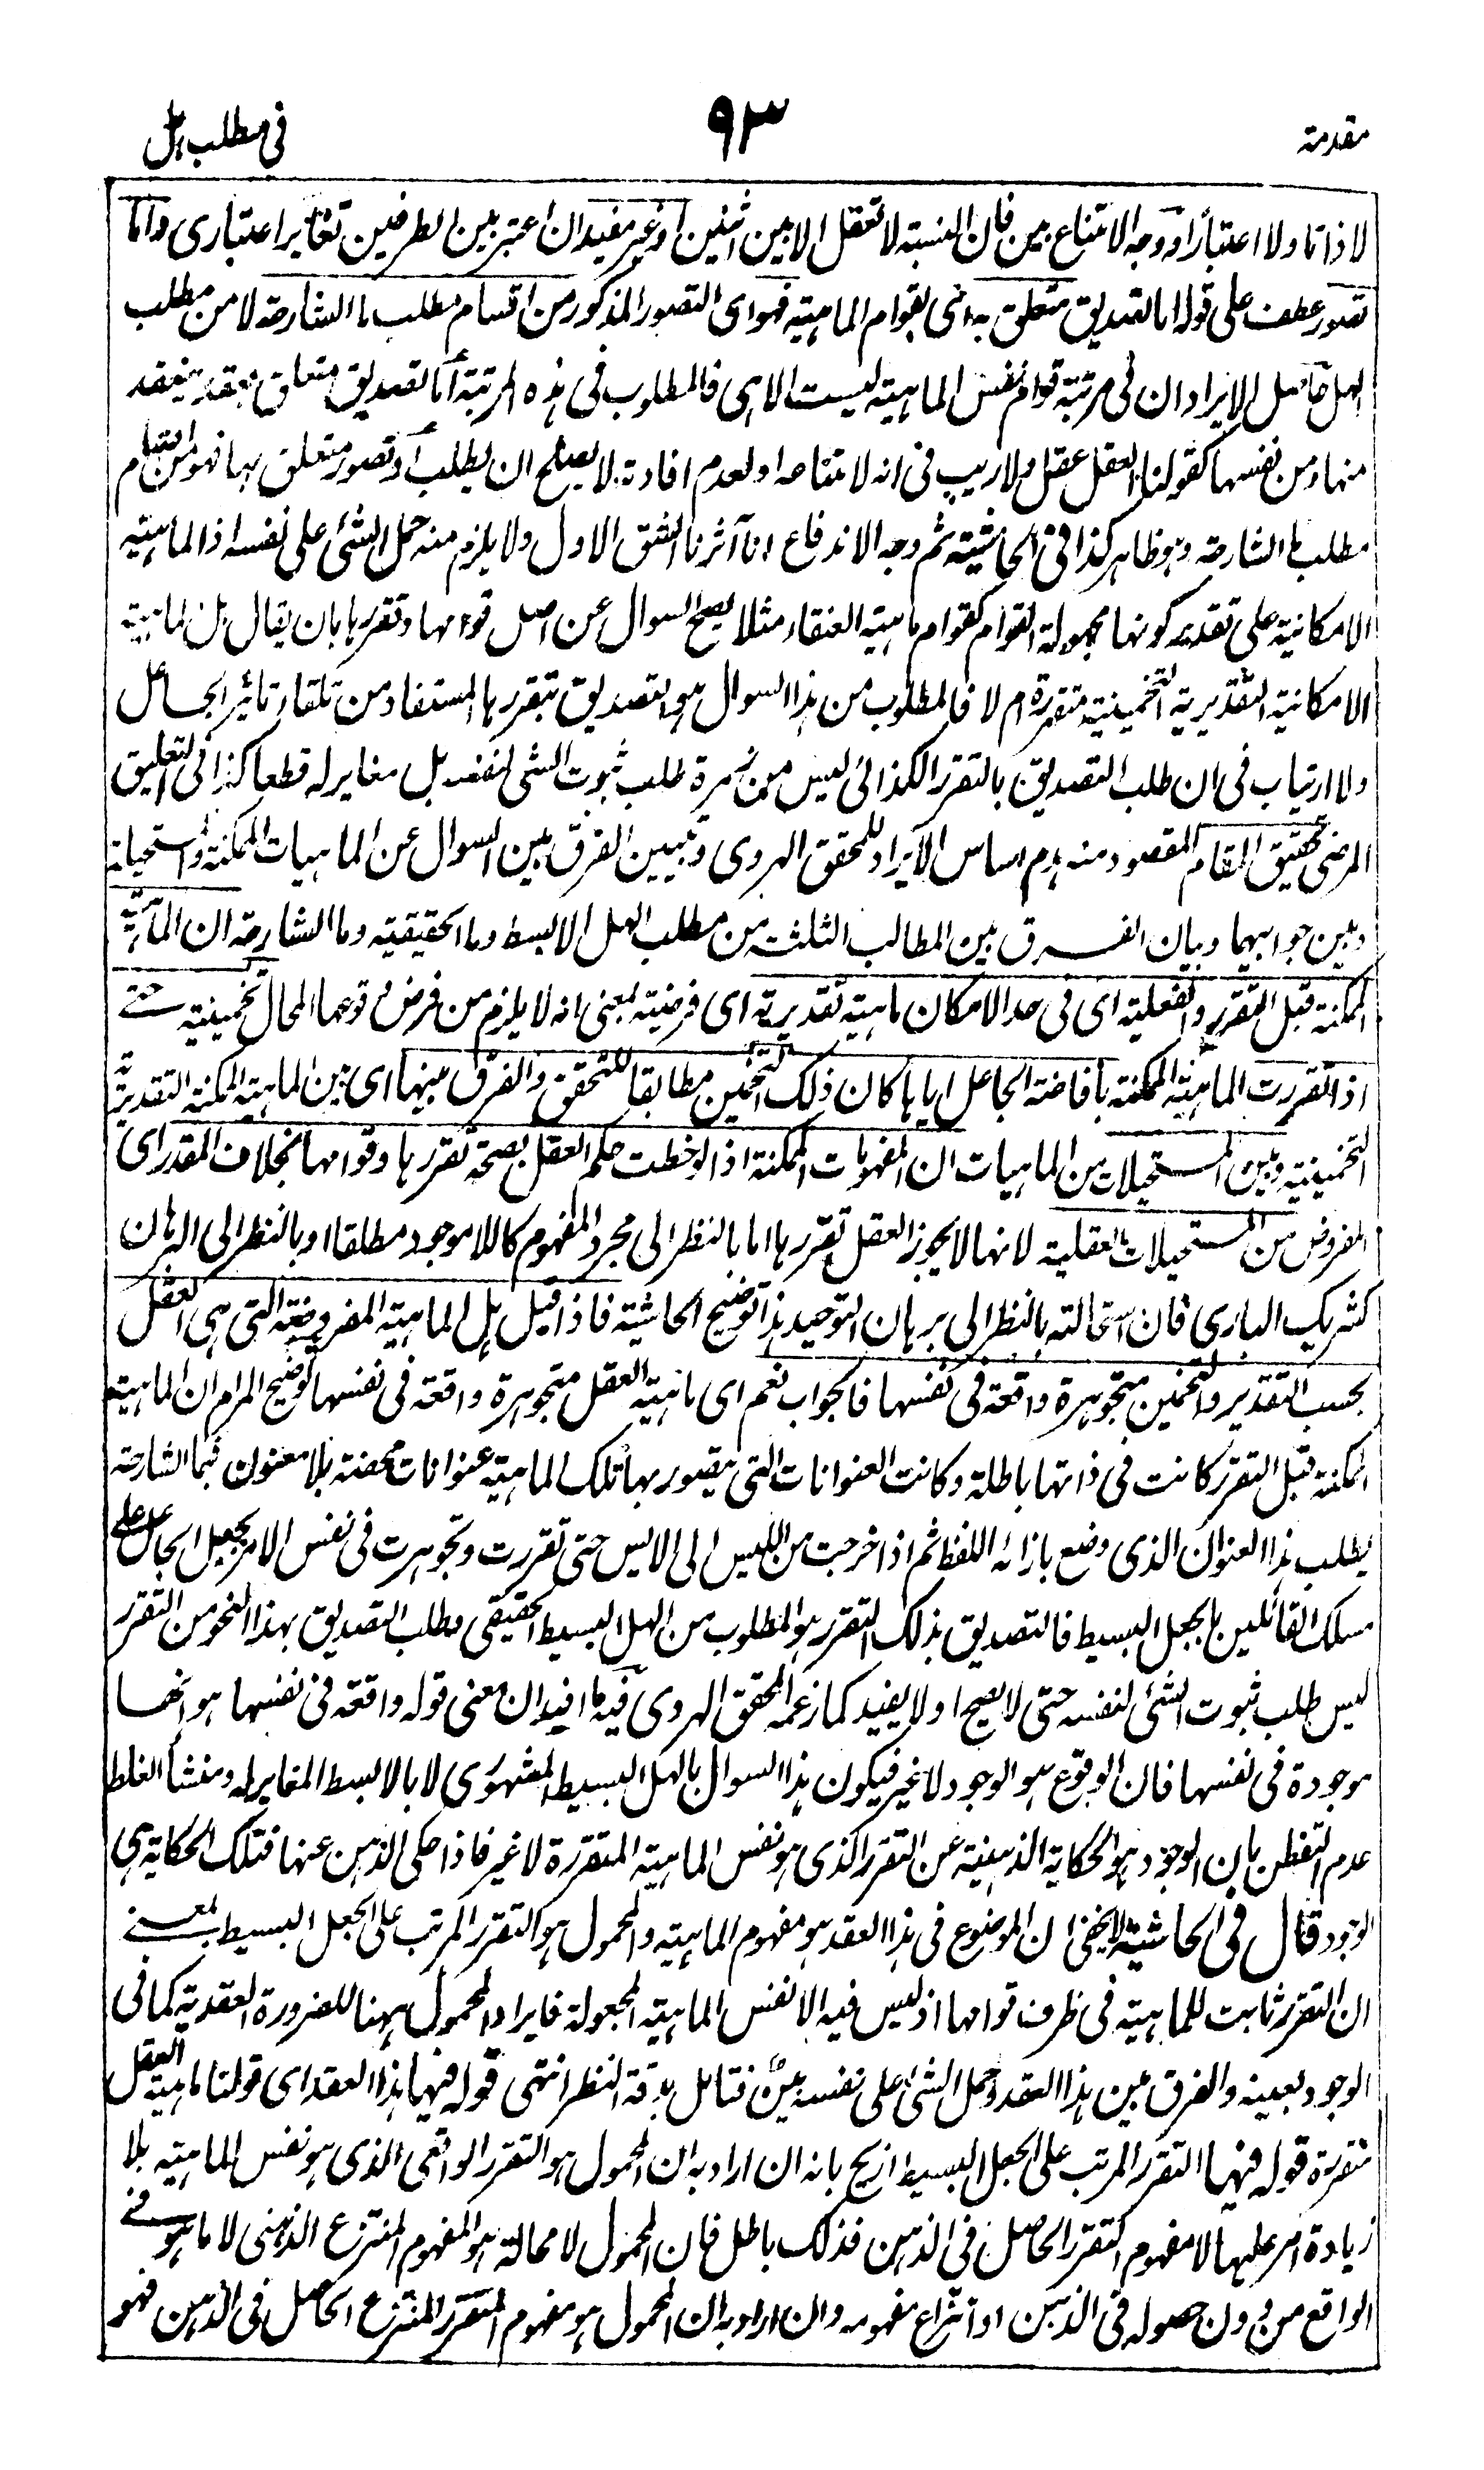 مقدمة
٩٣
فى مطلب هل
لا ذاتا ولا اعتبارا ووجه الامتناع بين فان النسبة لا تعقل الا بين اثنين او غير مفيد ان اعتبر بين الطرفين تغاير اعتبارى واما
تصور عطف على قوله اما تصديق متعلق به اى بقوام الماهية فهو اى التصور المذكور من اقسام مطلب ما الشارحة لا من مطلب
الهل حاصل الايراد ان فى مرتبة قوام نفس الماهية ليست الا هى فالمطلوب فى هذه المرتبة اما تصديق متعلق بعقد ينعقد
منها ومن نفسها كقولنا العقل عقل ولا ريب فى انه لامتناعه او لعدم افادته لا يصلح ان يطلب او تصور متعلق بها فهو من اقسام
مطلب ما الشارحة وهو ظاهر كذا فى الحاشية ثم وجه الاندفاع انا آثرنا الشق الاول ولا يلزم منه حمل الشئ على نفسه اذ الماهية
الامكانية على تقدير كونها مجهولة القوام كقوام ماهية العنقاء مثلا يصح السوال عن اصل قوامها وتقررها بان يقال هل لماهية
الامكانية التقديرية التخمينية متقررة ام لا فالمطلوب من هذا السوال هو التصديق بتقررها المستفاد من تلقاء تاثير الجاعل
ولا ارتياب فى ان طلب التصديق بالتقرر الكذائى ليس من زمرة طلب ثبوت الشئ لنفسه بل مغاير له قطعا كذا فى التعليق
المرضى تحقيق المقام المقصود منه هدم اساس الايراد للمحقق الهروى وتبيين الفرق بين السوال عن الماهيات الممكنة والمستحيلة
وبين جوابيهما وبيان الفرق بين المطالب الثلثة من مطلب الهل الابسط وما الحقيقية وما الشارحة ان الماهية
الممكنة قبل التقرر والفعلية اى فى حد الامكان ماهية تقديرية اى فرضية بمعنى انه لا يلزم من فرض وقوعها المحال تخمينية حتى
اذا تقررت الماهية الممكنة بافاضة الجاعل اياها كان ذلك التخمين مطابقا للتحقق والفرق بينها اى بين الماهية الممكنة التقديرية
التخمينية وبين المستحيلات من الماهيات ان المفهومات الممكنة اذا لوحظت حكم العقل بصحة تقررها وقوامها بخلاف المقدر اى
المفروض من المستحيلات العقلية لانها لا يجوز العقل تقررها اما بالنظر الى مجرد المفهوم كاللاموجود مطلقا او بالنظر الى البرهان
كشريك البارى فان استحالته بالنظر الى برهان التوحيد هذا توضيح الحاشية فاذا قيل هل الماهية المفروضة التى هى العقل
بحسب التقدير والتخمين متجوهرة واقعة فى نفسها فالجواب نعم اى ماهية العقل متجوهرة واقعة فى نفسها توضيح المرام ان الماهية
الممكنة قبل التقرر كانت فى ذاتها باطلة وكانت العنوانات التى يتصور بها تلك الماهية عنوانات محضة بلا معنون فبما الشارحة
يطلب هذا العنوان الذى وضع بازائه اللفظ ثم اذا خرجت من الليس الى الايس حتى تقررت وتجوهرت فى نفس الامر بجعل الجاعل على
مسلك القائلين بالجعل البسيط فالتصديق بذلك التقرر هو المطلوب من الهل البسيط الحقيقى وطلب التصديق بهذا النحو من التقرر
ليس طلب ثبوت الشئ لنفسه حتى لا يصح او لا يفيد كما زعمه المحقق الهروى فيه ما افيد ان معنى قوله واقعة فى نفسها هو انها
موجودة فى نفسها فان الوقوع هو الوجود لا غير فيكون هذا السوال بالهل البسيط المشهورى لا بالابسط المغاير له ومنشأ الغلط
عدم التفطن بان الوجود هو الحكاية الذهنية عن التقرر الذى هو نفس الماهية المتقررة لا غير فاذا حكى الذهن عنها فتلك الحكاية هى
الوجود قال فى الحاشية لا يخفى ان الموضوع فى هذا العقد هو مفهوم الماهية والمحمول هو التقرر المرتب على الجعل البسيط بمعنى
ان التقرر ثابت للماهية فى ظرف قوامها اذ ليس فيه الا نفس الماهية المجعولة فايراد المحمول ههنا للضرورة العقدية كما فى
الوجود بعينه والفرق بين هذا العقد وحمل الشئ على نفسه بين فتامل بدقة النظر انتهى قوله فيها هذا العقد اى قولنا ماهية العقل
متقررة قوله فيها التقرر المرتب على الجعل البسيط ازيح بانه ان اراد به ان المحمول هو التقرر الواقعى الذى هو نفس الماهية بلا
زيادة امر عليها لا مفهوم التقرر الحاصل فى الذهن فذلك باطل فان المحمول لا محالة هو المفهوم المنتزع الذهنى لا ما هو فى
الواقع من دون حصوله فى الذهن او انتزاع مفهومه وان اراد به ان المحمول هو مفهوم التقرر المنتزع الحاصل فى الذهن فهو